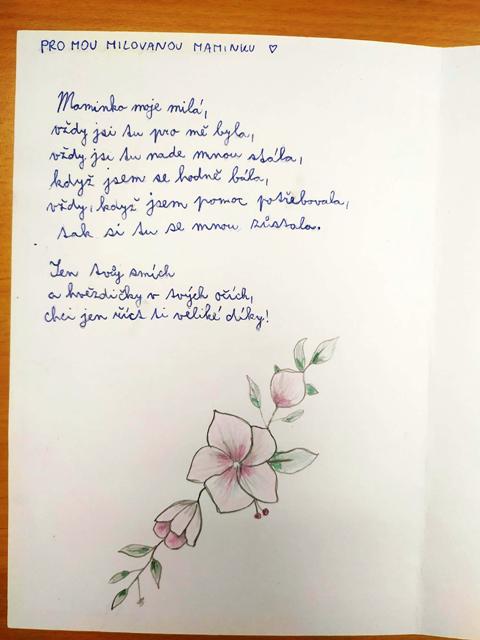 PRO MOU MILOVANOU MAMINKU ♡
Maminko moje milá,
vždy jsi tu pro mě byla,
vždy jsi tu nade mnou stála,
když jsem se hodně bála,
vždy, když jsem pomoc potřebovala,
tak si tu se mnou zůstala.
Ten tvůj smích
a hvězdičky v tvých očích,
chci jen říct ti veliké díky!